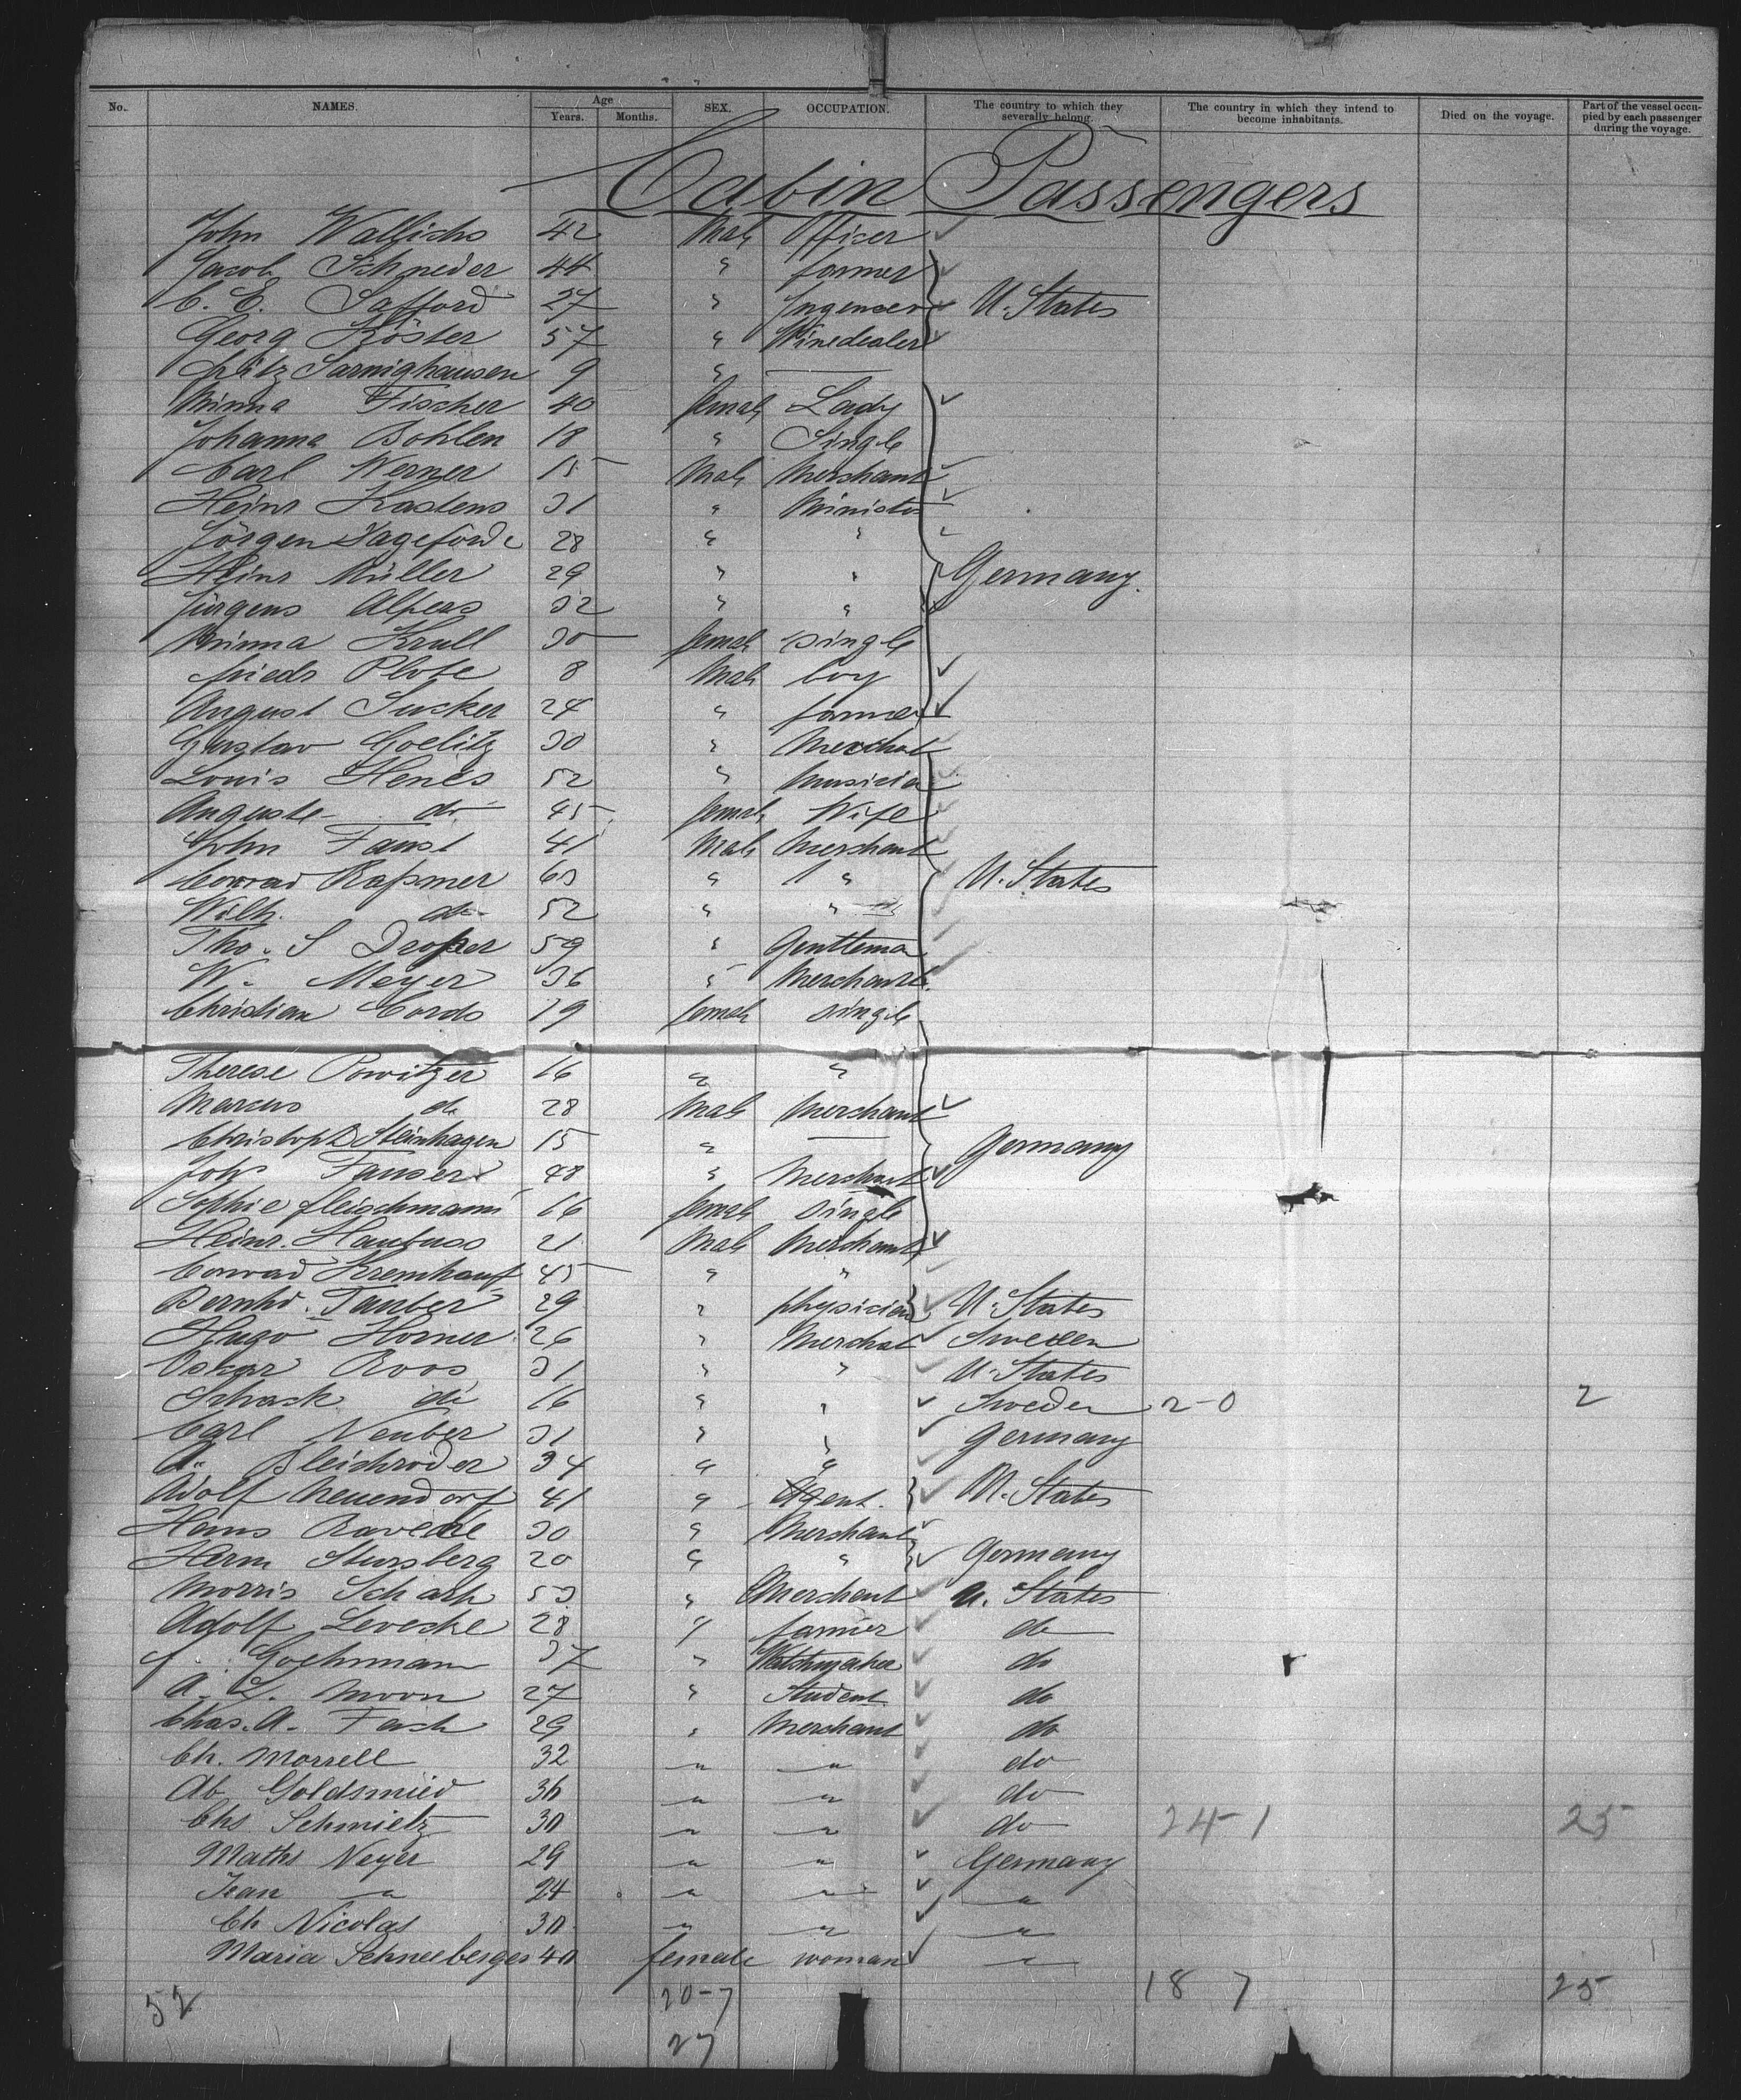 No. NAMES. Age Years. Months. SEX. OCCUPATION. The country to which they severally belong. The country in which they intend to become inhabitants. Died on the voyage. Part of the vessel occupied by each passenger during the voyage.
Cabin Passengers
John Wallichs 42 Male Officer
Jacob Schneder 44 " farmer
C. E. Safford 27 " Ingeneer U. States
Georg Köster 57 " Winedealer
Fritz Sarnighausen 9 " —
Minna Fischer 40 female Lady
Johanna Bohlen 18 " Single
Carl Werner 15 Male Merchant
Heinr Kastens 31 " Minister
Jörgen 28 " "
Heinr Müller 29 " " Germany.
Jürgens Alpers 32 " "
Minna Krull 30 female single
Friedr Plote 8 Male boy
August Sucker 24 " farmer
Gustav Goelitz 30 " Merchat
Louis Henes 52 " Musician
Auguste do 45 female Wife
John Faust 41 Male Merchant
Conrad Raßmer 63 " " U. States
Wilh. do 52 " "
Tho. S Droper 59 " Gentleman
W. Meyer 36 " Merchant
Christian Cords 19 female single
Therese Powitzer 16 " "
Marcus do 28 Male Merchant
Christoph Steinhagen 15 " — Germany
Joh Fauser 48 " Merchant
Sophie Fleischmann 16 female single
Heinr. Haufuss 21 Male Merchant
Conrad 45 " "
Bernhd. Tauber 29 " physician U. States
Hugo Horner 26 " Merchat Sweden
Oskar Roos 31 " " U. States
Schack do 16 " " Sweden 2-0 2
Carl Neuber 31 " " Germany
A. Bleichröder 34 " "
Adolf Neuendorf 41 " Agent. U. States
Hans 30 " Merchant
Herm Stursberg 20 " " Germany
Morris Schark 53 " Merchant U. States
Adolf Levecke 28 " farmer do
F. Gochrmann 37 " Watchmaker do
A. L. Moon 27 " Student do
Chas. A. Fach 29 " Merchant do
Ch. Morrell 32 " " do
Ab Goldsmied 36 " " do
Chs Schmietz 30 " " do 24-1 25
Maths Neyer 29 " " Germany
Jean " 24 " " "
Ch Nicolas 30 " " "
Maria Schneeberger 40 female woman "
52 20-7 18 7 25
27